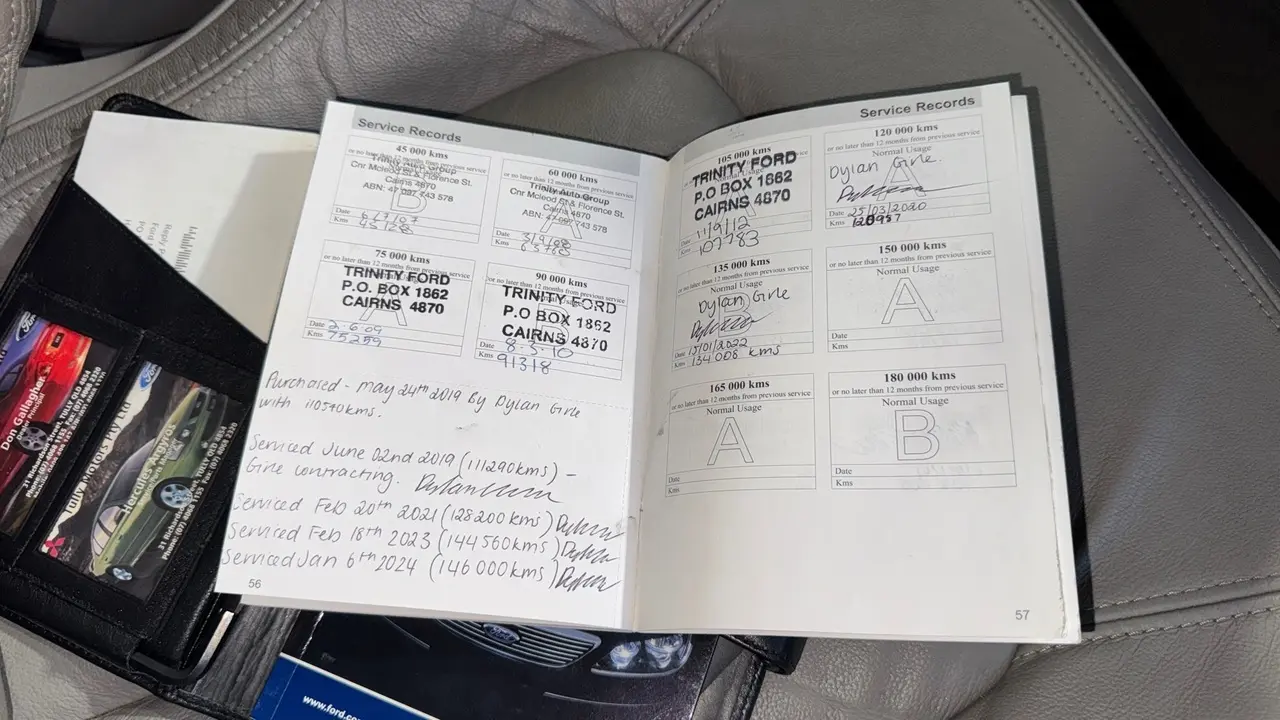 Service Records
45 000 kms
or no later than 12 months from previous service
Trinity Auto Group
Cnr Mcleod St & Florence St.
Cairns 4870
ABN: 47 097 743 578
B
Date 6/7/07
Kms 45128
60 000 kms
or no later than 12 months from previous service
Trinity Auto Group
Cnr Mcleod St & Florence St.
Cairns 4870
ABN: 47 097 743 578
A
Date
Kms
75 000 kms
or no later than 12 months from previous service
TRINITY FORD
P.O. BOX 1862
CAIRNS 4870
A
Date 2-6-09
Kms 75259
90 000 kms
or no later than 12 months from previous service
TRINITY FORD
P.O BOX 1862
CAIRNS 4870
Date 8-3-10
Kms 91318
Purchased - May 24th 2019 by Dylan Girle
with 110540kms.
Serviced June 02nd 2019 (111290kms) -
Girle contracting.
Serviced Feb 20th 2021 (128200kms)
Serviced Feb 18th 2023 (144560kms)
Serviced Jan 6th 2024 (146000kms)
56
Service Records
105 000 kms
TRINITY FORD
P.O BOX 1862
CAIRNS 4870
Date 11/9/12
Kms 107783
120 000 kms
or no later than 12 months from previous service
Normal Usage
A
Dylan Girle.
Date 25/03/2020
Kms
135 000 kms
or no later than 12 months from previous service
Normal Usage
B
Dylan Girle
Date 15/01/2022
Kms 134 008 kms
150 000 kms
or no later than 12 months from previous service
Normal Usage
A
Date
Kms
165 000 kms
or no later than 12 months from previous service
Normal Usage
A
Date
Kms
180 000 kms
or no later than 12 months from previous service
Normal Usage
B
Date
Kms
57
Ford
Don Gallagher
Principal
31 Richardson Street, TULLY QLD 4854
Tully Motors Pty Ltd
Hercules Argyros
31 Richardson
TULLY QLD 4854
Ford
www.ford.co